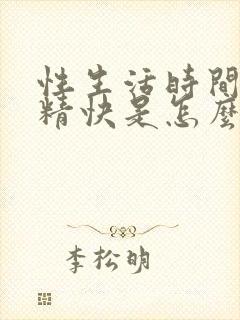 性生活時間
精快是怎麼
李松明